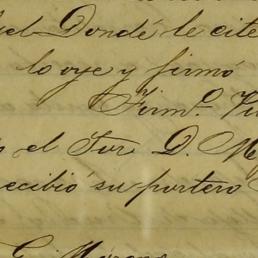 el Dondé le cite
lo oye y firmó
Firmo. Vi
el Sur D. Me
ecibió su portero
G. Moreno